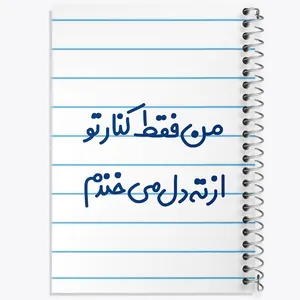 من فقط کنار تو
از ته دل می خندم